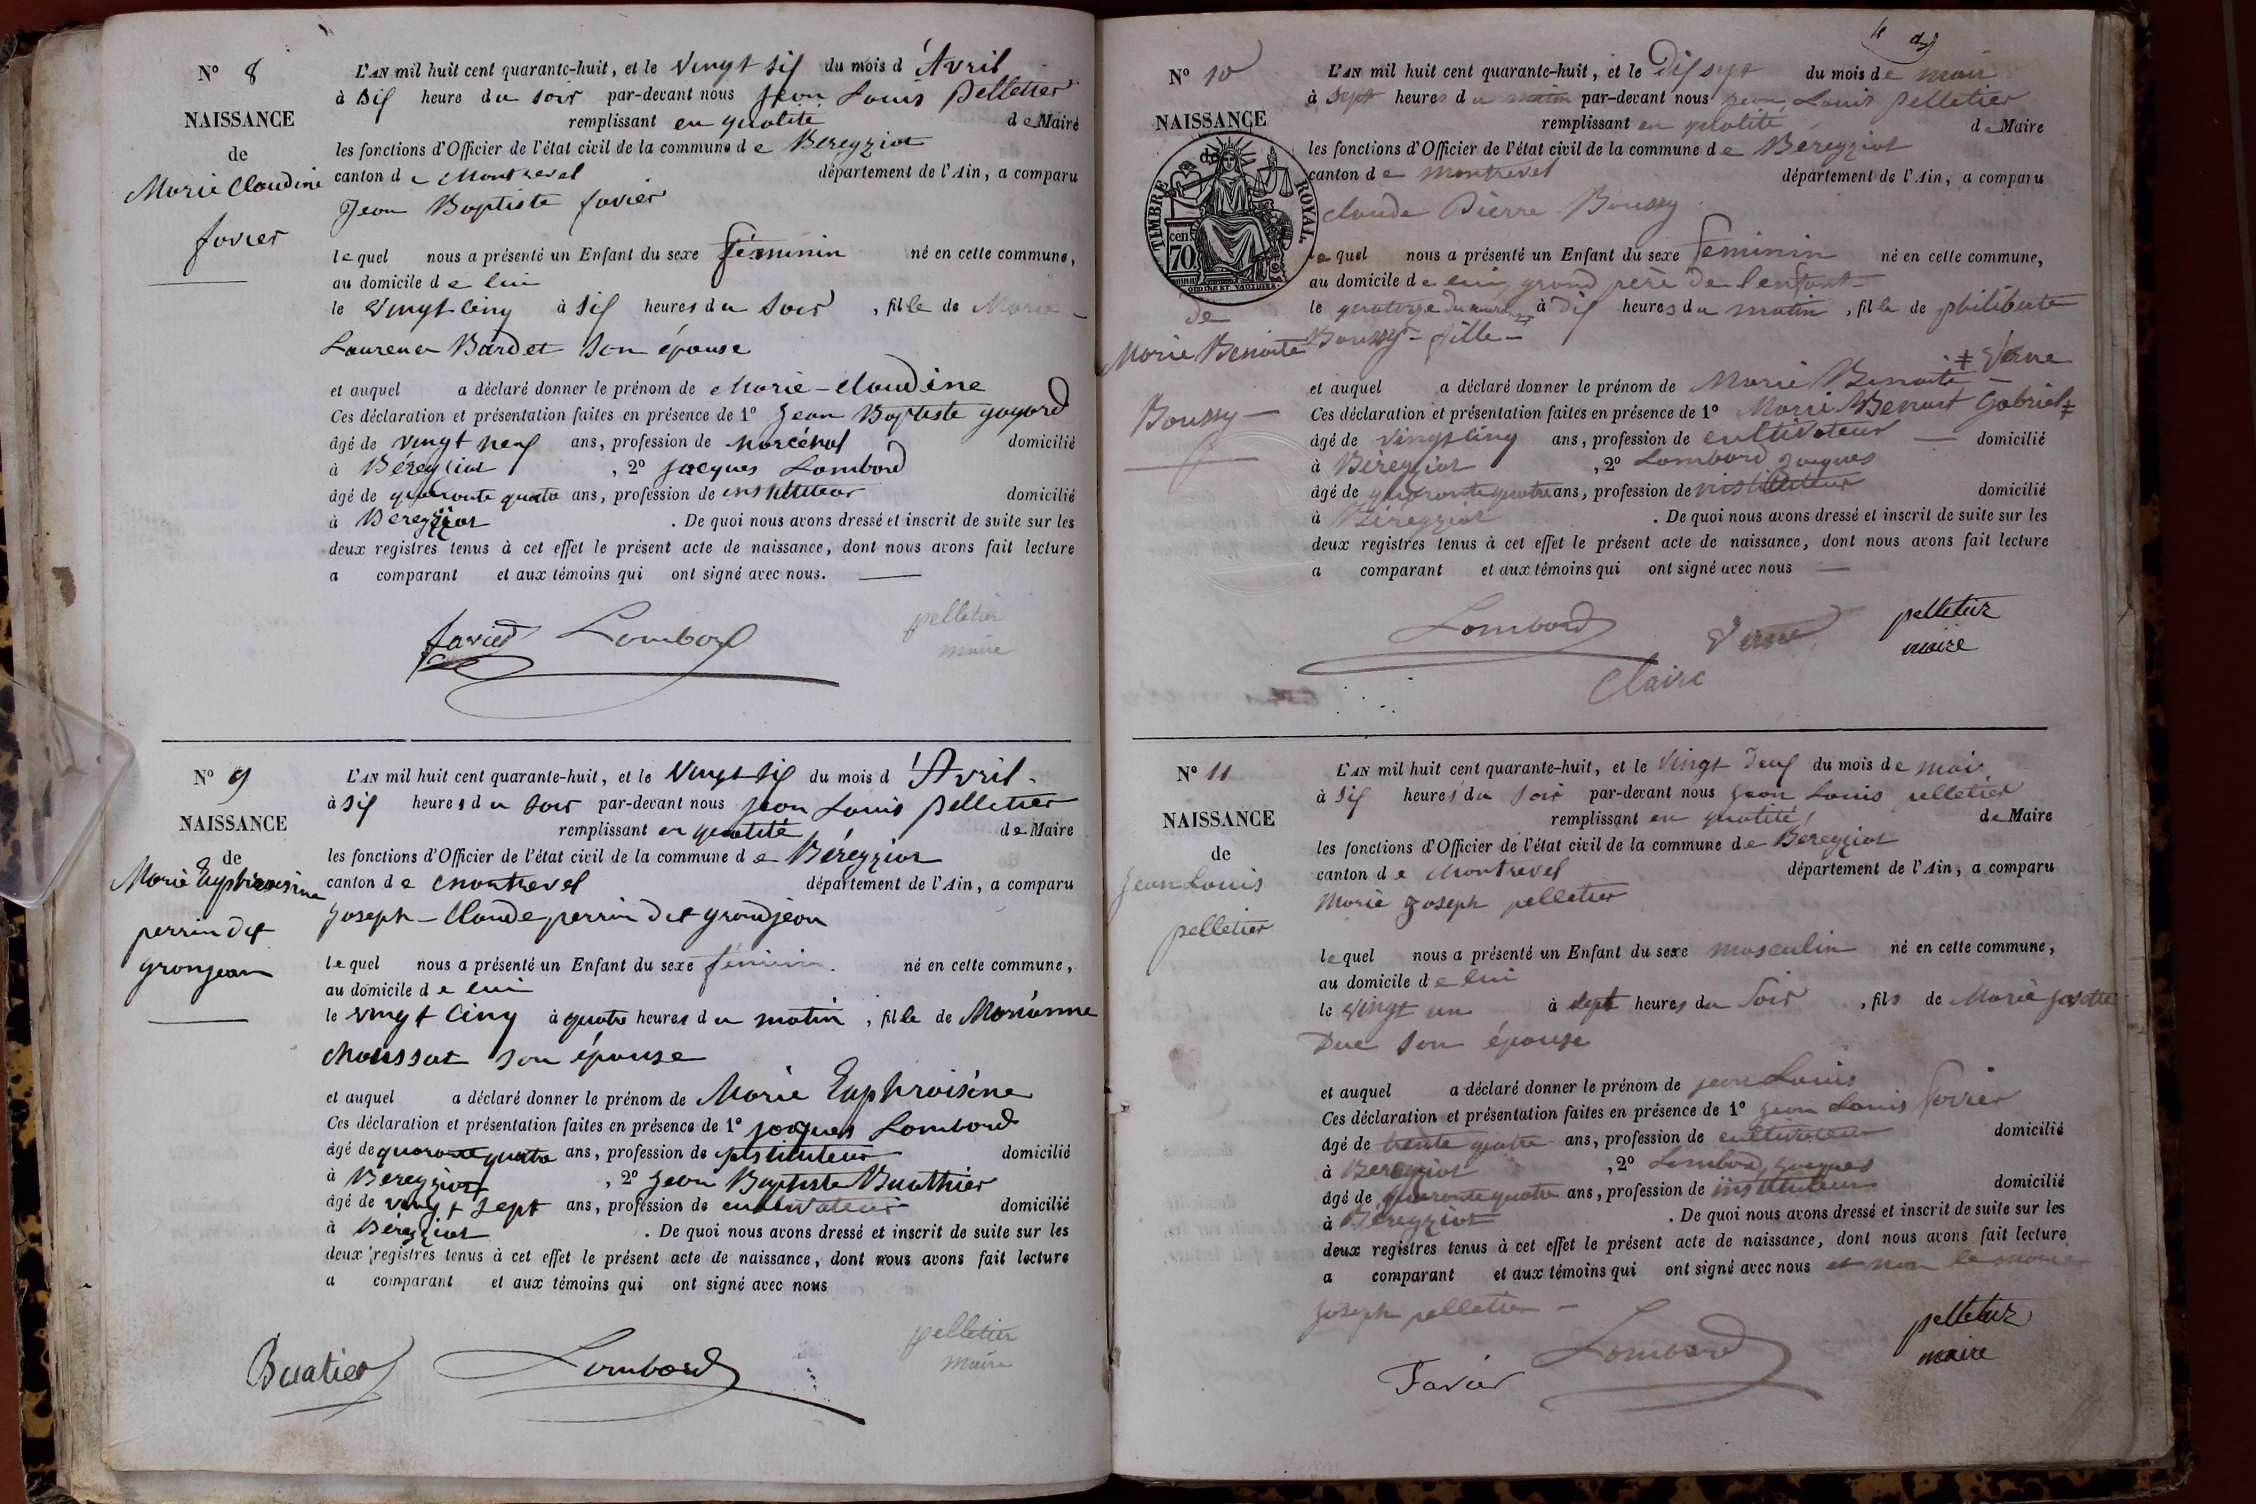 N° 8
NAISSANCE
de
Marie Claudine
favier
L'AN mil huit cent quarante-huit, et le vingt six du mois d'Avril
à Six heure du soir par-devant nous Jean Louis pelletier
remplissant en qualité de Maire
les fonctions d'Officier de l'état civil de la commune de Béreyziat
canton de Montrevel département de l'Ain, a comparu
Jean Baptiste favier
lequel nous a présenté un Enfant du sexe féminin né en cette commune,
au domicile de lui
le vingt cinq à six heures du soir, fille de Marie
Laurence Bardet son épouse
et auquel a déclaré donner le prénom de Marie-Claudine
Ces déclaration et présentation faites en présence de 1° Jean Baptiste
âgé de vingt neuf ans, profession de domicilié
à Béreyziat, 2° Jacques Lombard
âgé de quarante quatre ans, profession de instituteur domicilié
à Béreyziat. De quoi nous avons dressé et inscrit de suite sur les
deux registres tenus à cet effet le présent acte de naissance, dont nous avons fait lecture
a comparant et aux témoins qui ont signé avec nous.
favier Lombard pelletier
maire
N° 9
NAISSANCE
de
Marie Euphroisine
perrin dit
gronjean
L'AN mil huit cent quarante-huit, et le vingt six du mois d'Avril
à six heures du soir par-devant nous Jean Louis pelletier
remplissant en qualité de Maire
les fonctions d'Officier de l'état civil de la commune de Béreyziat
canton de Montrevel département de l'Ain, a comparu
Joseph-Claude perrin dit grandjean
lequel nous a présenté un Enfant du sexe féminin. né en cette commune,
au domicile de lui
le vingt cinq à quatre heures du matin, fille de Marianne
Moussat son épouse
et auquel a déclaré donner le prénom de Marie Euphroisine
Ces déclaration et présentation faites en présence de 1° Jacques Lombard
âgé de quarante quatre ans, profession de instituteur domicilié
à Béreyziat, 2° Jean Baptiste Buathier
âgé de vingt sept ans, profession de cultivateur domicilié
à Béreyziat. De quoi nous avons dressé et inscrit de suite sur les
deux registres tenus à cet effet le présent acte de naissance, dont nous avons fait lecture
a comparant et aux témoins qui ont signé avec nous
Buatier Lombard pelletier
maire
N° 10
NAISSANCE
TIMBRE ROYAL
70 cen
de
Marie Benoite
Boussy
L'AN mil huit cent quarante-huit, et le dix sept du mois de mai
à sept heures du matin par-devant nous Jean Louis pelletier
remplissant en qualité de Maire
les fonctions d'Officier de l'état civil de la commune de Béreyziat
canton de Montrevel département de l'Ain, a comparu
Claude Pierre Boussy
lequel nous a présenté un Enfant du sexe féminin né en cette commune,
au domicile de lui grand père de l'enfant
le quatorze du à dix heures du matin, fille de philiberte
Boussy - fille -
‡ Verne
et auquel a déclaré donner le prénom de Marie Benoite
Ces déclaration et présentation faites en présence de 1° Marie Benoit Gabriel ‡
âgé de vingt cinq ans, profession de cultivateur domicilié
à Béreyziat, 2° Lombard Jacques
âgé de quarante quatre ans, profession de instituteur domicilié
à Béreyziat. De quoi nous avons dressé et inscrit de suite sur les
deux registres tenus à cet effet le présent acte de naissance, dont nous avons fait lecture
a comparant et aux témoins qui ont signé avec nous
Lombard Verne pelletier
maire
Claire
N° 11
NAISSANCE
de
Jean Louis
pelletier
L'AN mil huit cent quarante-huit, et le vingt deux du mois de mai
à six heures du soir par-devant nous Jean Louis pelletier
remplissant en qualité de Maire
les fonctions d'Officier de l'état civil de la commune de Béreyziat
canton de Montrevel département de l'Ain, a comparu
Marie Joseph pelletier
lequel nous a présenté un Enfant du sexe masculin né en cette commune,
au domicile de lui
le vingt un à sept heures du soir, fils de Marie Josette
Duc son épouse
et auquel a déclaré donner le prénom de Jean Louis
Ces déclaration et présentation faites en présence de 1° Jean Louis favier
âgé de trente quatre ans, profession de cultivateur domicilié
à Béreyziat, 2° Lombard Jacques
âgé de quarante quatre ans, profession de instituteur domicilié
à Béreyziat. De quoi nous avons dressé et inscrit de suite sur les
deux registres tenus à cet effet le présent acte de naissance, dont nous avons fait lecture
a comparant et aux témoins qui ont signé avec nous et non le marie
Joseph pelletier
Favier Lombard pelletier
maire